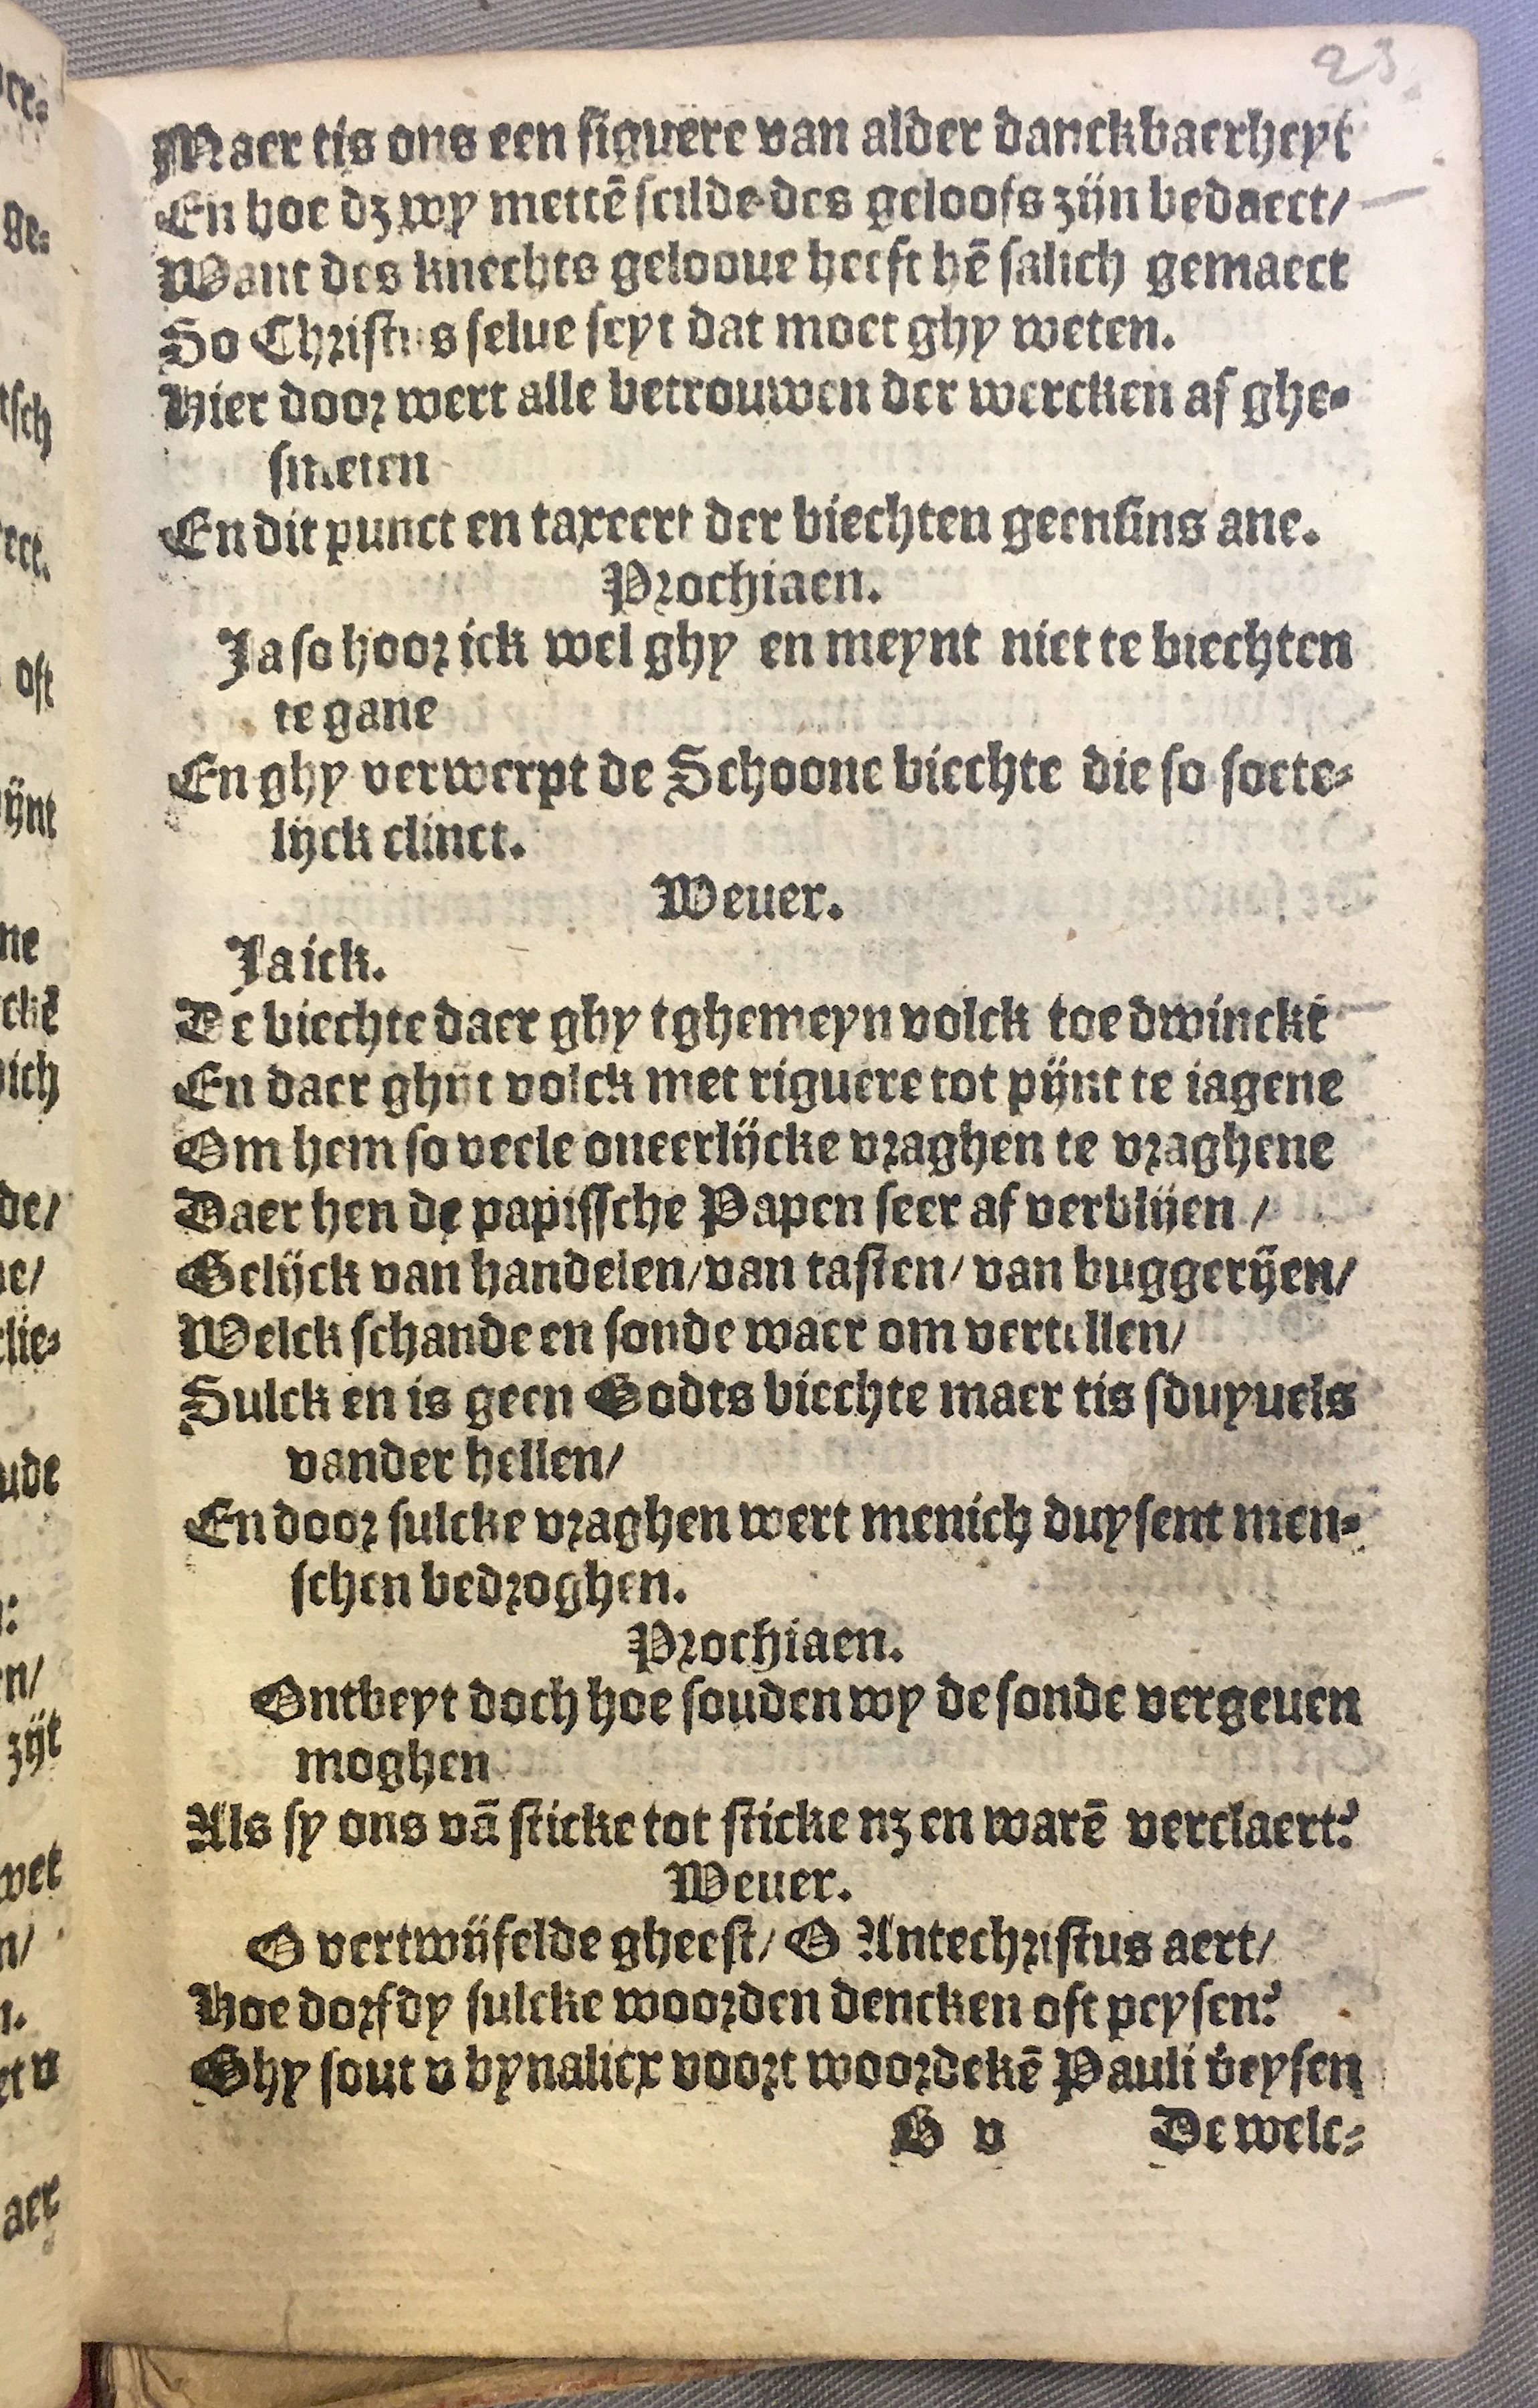 23
Maer tis ons een figuere van alder danckbaerheyt
En hoe dz wy mettē scilde des geloofs zijn bedaect/
Want des knechts gelooue heeft hē salich gemaect
So Christus selue seyt dat moet ghy weten.
Hier door wert alle betrouwen der wercken af ghe-
smeten
En dit punct en taxeert der biechten geensins ane.
Prochiaen.
Ja so hoor ick wel ghy en meynt niet te biechten
te gane
En ghy verwerpt de Schoone biechte die so soete-
lijck clinct.
Weuer.
Ja ick.
De biechte daer ghy tghemeyn volck toe dwinckt
En daer ghijt volck met riguere tot pijnt te iagene
Om hem so veele oneerlijcke vraghen te vraghene
Daer hen de papissche Papen seer af verblijen /
Gelijck van handelen/ van tasten/ van buggerijen/
Welck schande en sonde waer om vertellen/
Sulck en is geen Godts biechte maer tis sduyuels
vander hellen/
En door sulcke vraghen wert menich duysent men-
schen bedroghen.
Prochiaen.
Ontbeyt doch hoe souden wy de sonde vergeuen
moghen
Als sy ons vā sticke tot sticke nz en warē verclaert?
Weuer.
O vertwijfelde gheest/ O Antechristus aert/
Hoe dorfdy sulcke woorden dencken oft peysen?
Ghy sout v bynalicx voort woordekē Pauli veysen
G v De welc-